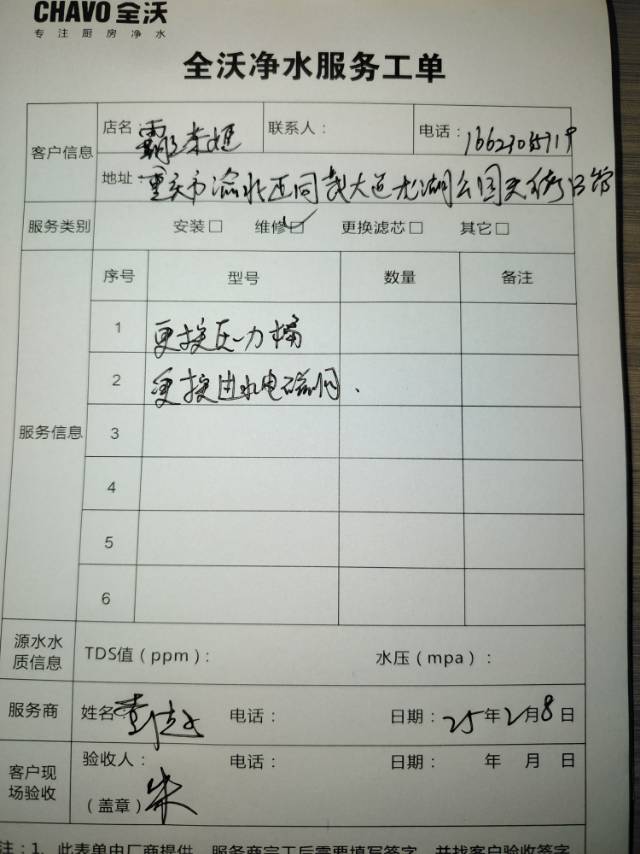 CHAVO 全沃
专注厨房净水
全沃净水服务工单
客户信息
店名： 霸王茶姬
联系人：
电话：
地址： 重庆市渝北区同茂大道龙湖公园天街
服务类别 安装□ 维修☑ 更换滤芯□ 其它□
服务信息
序号 型号 数量 备注
1 更换压力桶
2 更换进水电磁阀.
3
4
5
6
源水水质信息
TDS值（ppm）： 水压（mpa）：
服务商 姓名 电话： 日期：25年2月8日
客户现场验收
验收人： 电话： 日期： 年 月 日
（盖章） 朱
注：1、此表单由厂商提供，服务商完工后需要填写签字，并找客户验收签字